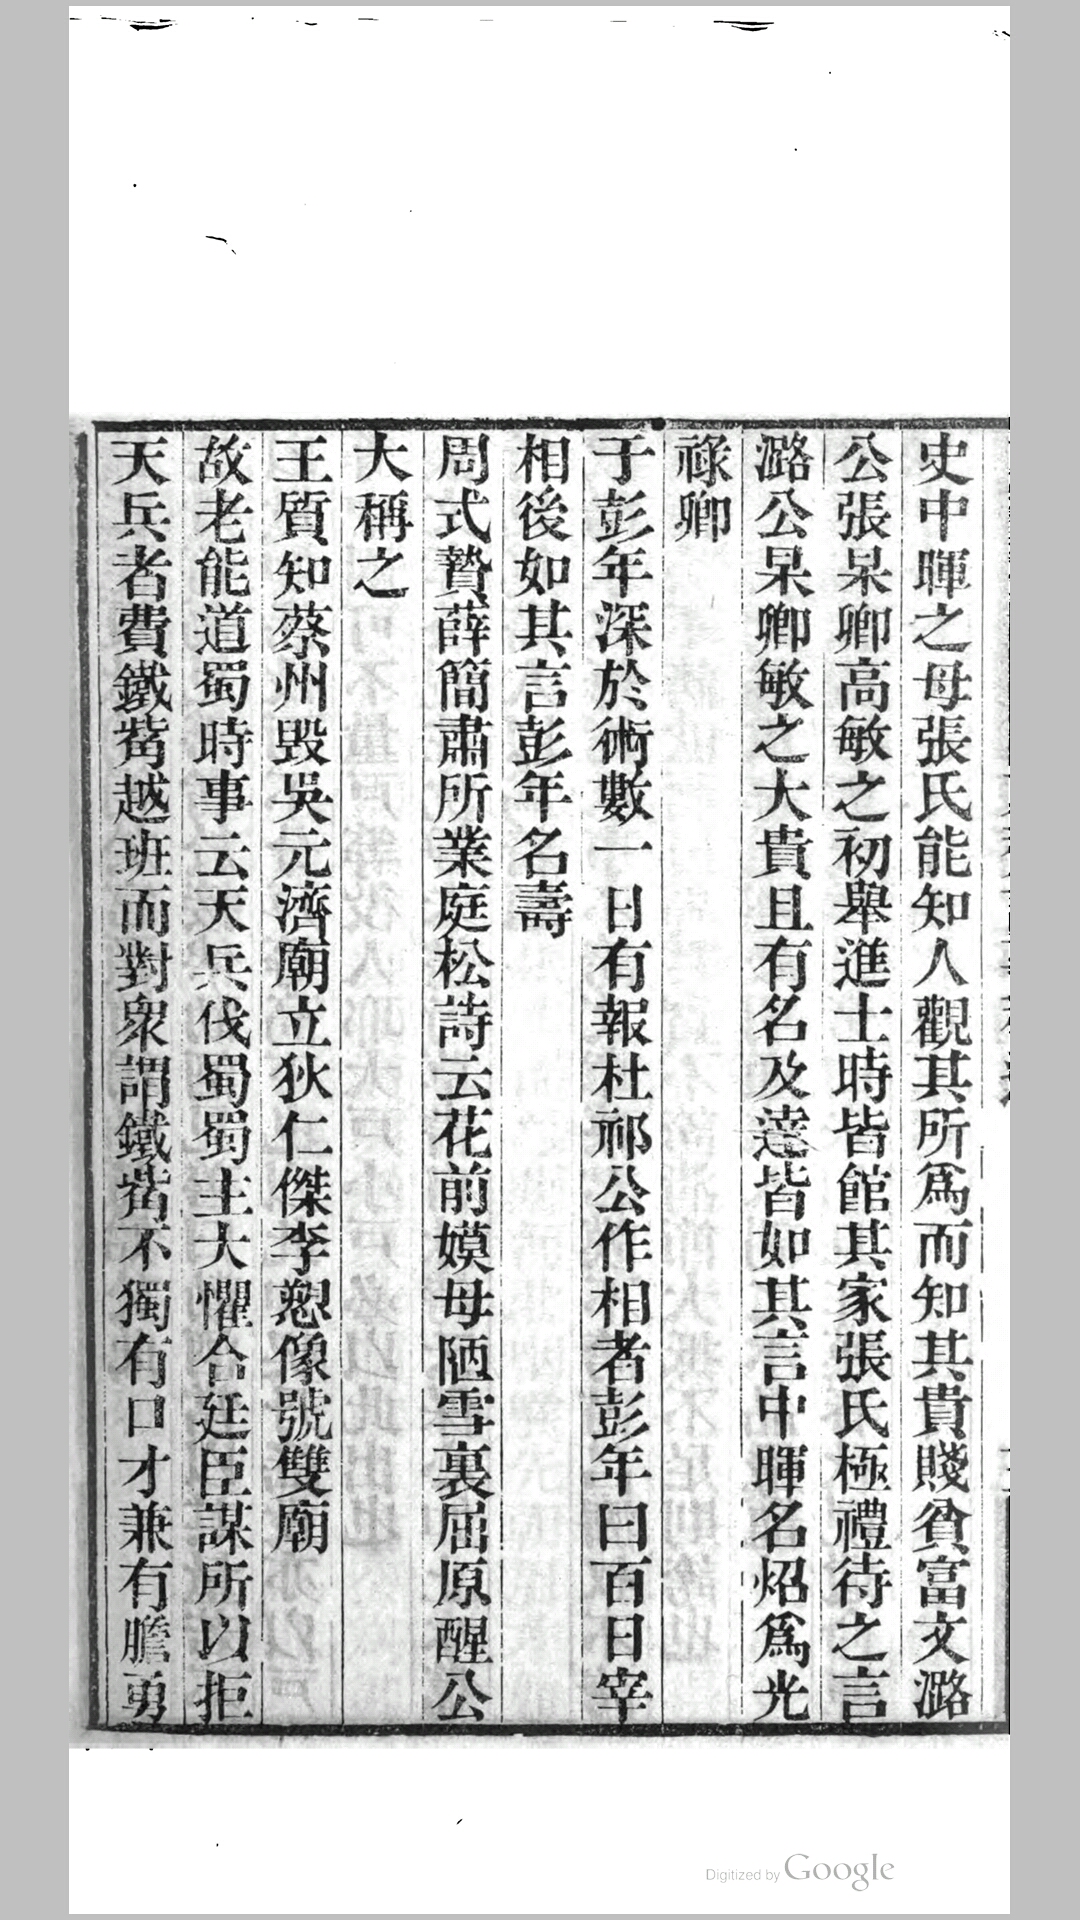 史中暉之母張氏能知人觀其所爲而知其貴賤貧富文潞
公張杲卿高敏之初舉進士時皆館其家張氏極禮待之言
潞公杲卿敏之大貴且有名及達皆如其言中暉名炤爲光
祿卿
于彭年深於術數一日有報杜祁公作相者彭年曰百日宰
相後如其言彭年名壽
周式贄薛簡肅所業庭松詩云花前嫫母陋雪裏屈原醒公
大稱之
王質知蔡州毀吳元濟廟立狄仁傑李愬像號雙廟
故老能道蜀時事云天兵伐蜀蜀主大懼合廷臣謀所以拒
天兵者費鐵觜越班而對衆謂鐵觜不獨有口才兼有膽勇
Digitized by Google